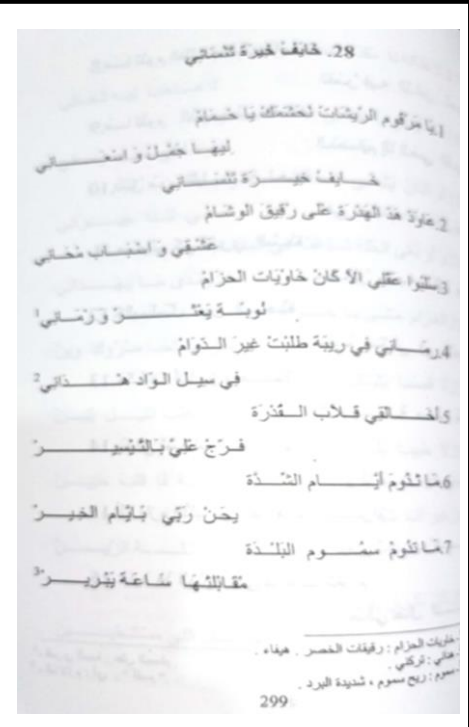 28. خَايَفْ خِيرَة تَنْسَانِي
1.يَا مَرْقُوم الرّيشَاتْ لَحْشَمَكْ يَا حَمَامْ
لِيهَا جَمَّلْ وَ اسْعَانِي
خَايفْ خِيرَة تَنْسَانِي
2.عَاوَدْ هَذْ الهَدْرَة عْلَى رْقِيقْ الوْشَامْ
عَشْقِي وَ اسْبَابْ مْحَانِي
3.سَلْبُوا عَقْلِي الاَّ كَانْ خَاوْيَاتْ الحْزَامْ
نُوبَة يَعْثَرْ وَ رْمَانِي1
4.رمَانِي فِي رِيبَة طْلَبْتْ غِيرْ الدْوَامْ
فِي سيل الوَاد هْدَانِي2
5.أخَالقِي قلاَب القُدْرَة
فَرّجْ عْلِيَّ بَالتَّيْسِيرْ
6.مَا تْدُومْ أيَّام الشَّدَّة
يحَنْ رَبِّي بَايَّام الخِيرْ
7.مَا تْدُومْ سمُوم البَلْدَة
مْقَابَلتْهَا سَاعَة يَبْرِيرْ3
خاويات الحزام : رقيقات الخصر . هيفاء .
هداني : تركني .
سموم : ريح سموم ، شديدة البرد .
299